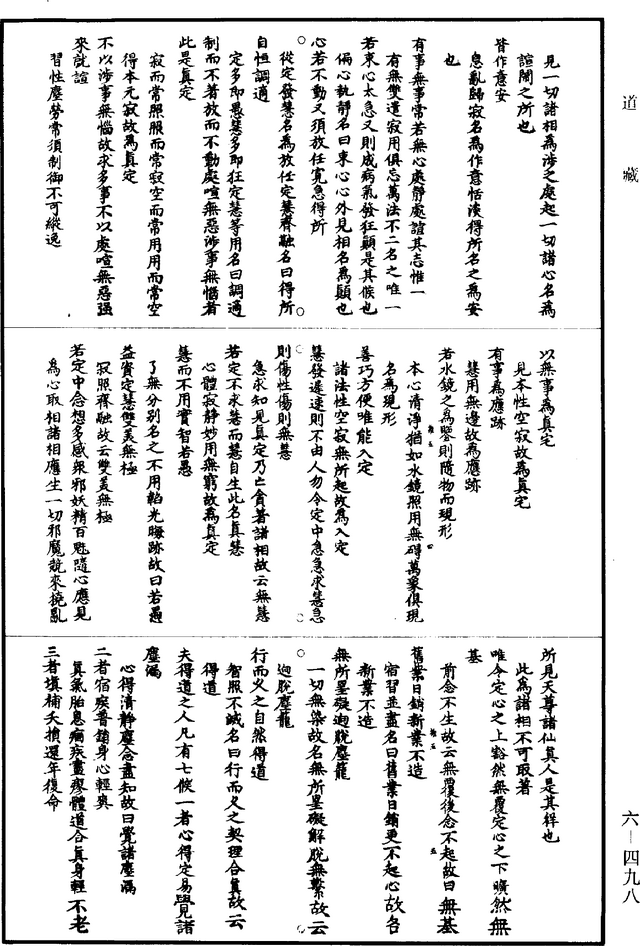 道藏
見一切諸相為涉之處起一切諸心名為
諠鬧之所也
皆作意安
息亂歸寂名為作意恬淡得所名之為安
也
有事無事常若無心處靜處諠其志惟一
有無雙遣寂用俱忘萬法不二名之唯一
若束心太急又則成病氣發狂顛是其候也
偏心執靜名曰束心心外見相名為顛也
心若不動又須放任寬急得所
從定發慧名為放任定慧齊融名曰得所
自恒調適
定多即愚慧多即狂定慧等用名曰調適
制而不著放而不動處喧無惡涉事無惱者
此是真定
寂而常照照而常寂空而常用用而常空
得本元寂故為真定
不以涉事無惱故求多事不以處喧無惡强
來就諠
習性塵勞常須制御不可縱逸
以無事為真宅
見本性空寂故為真宅
有事為應跡
慧用無邊故為應跡
若水鏡之為鑒則隨物而現形
本心清淨猶如水鏡照用無碍萬象俱現
名為現形
善巧方便唯能入定
諸法性空寂無所起故為入定
慧發遲速則不由人勿令定中急急求慧急
則傷性傷則無慧
急求知見真定乃亡貪著諸相故云無慧
若定不求慧而慧自生此名真慧
心體寂靜妙用無窮故為真定
慧而不用實智若愚
了無分別名之不用韜光晦跡故曰若愚
益資定慧雙美無極
寂照齊融故云雙美無極
若定中念想多感衆邪妖精百魅隨心應見
為心取相諸相應生一切邪魔競來撓亂
所見天尊諸仙真人是其祥也
此為諸相不可取著
唯令定心之上豁然無覆定心之下曠然無
基
前念不生故云無覆後念不起故曰無基
舊業日銷新業不造
宿習並盡名曰舊業日銷更不起心故名
新業不造
無所罣礙迥脫塵籠
一切無染故名無所罣礙解脫無繫故云
迥脫塵籠
行而久之自然得道
智照不滅名曰行而久之契理合真故云
得道
夫得道之人凡有七候一者心得定易覺諸
塵漏
心得清靜塵念盡知故曰覺諸塵漏
二者宿疾普銷身心輕爽
真氣胎息痼疾盡瘳體道合真身輕不老
三者填補夭損還年復命
六—四九八